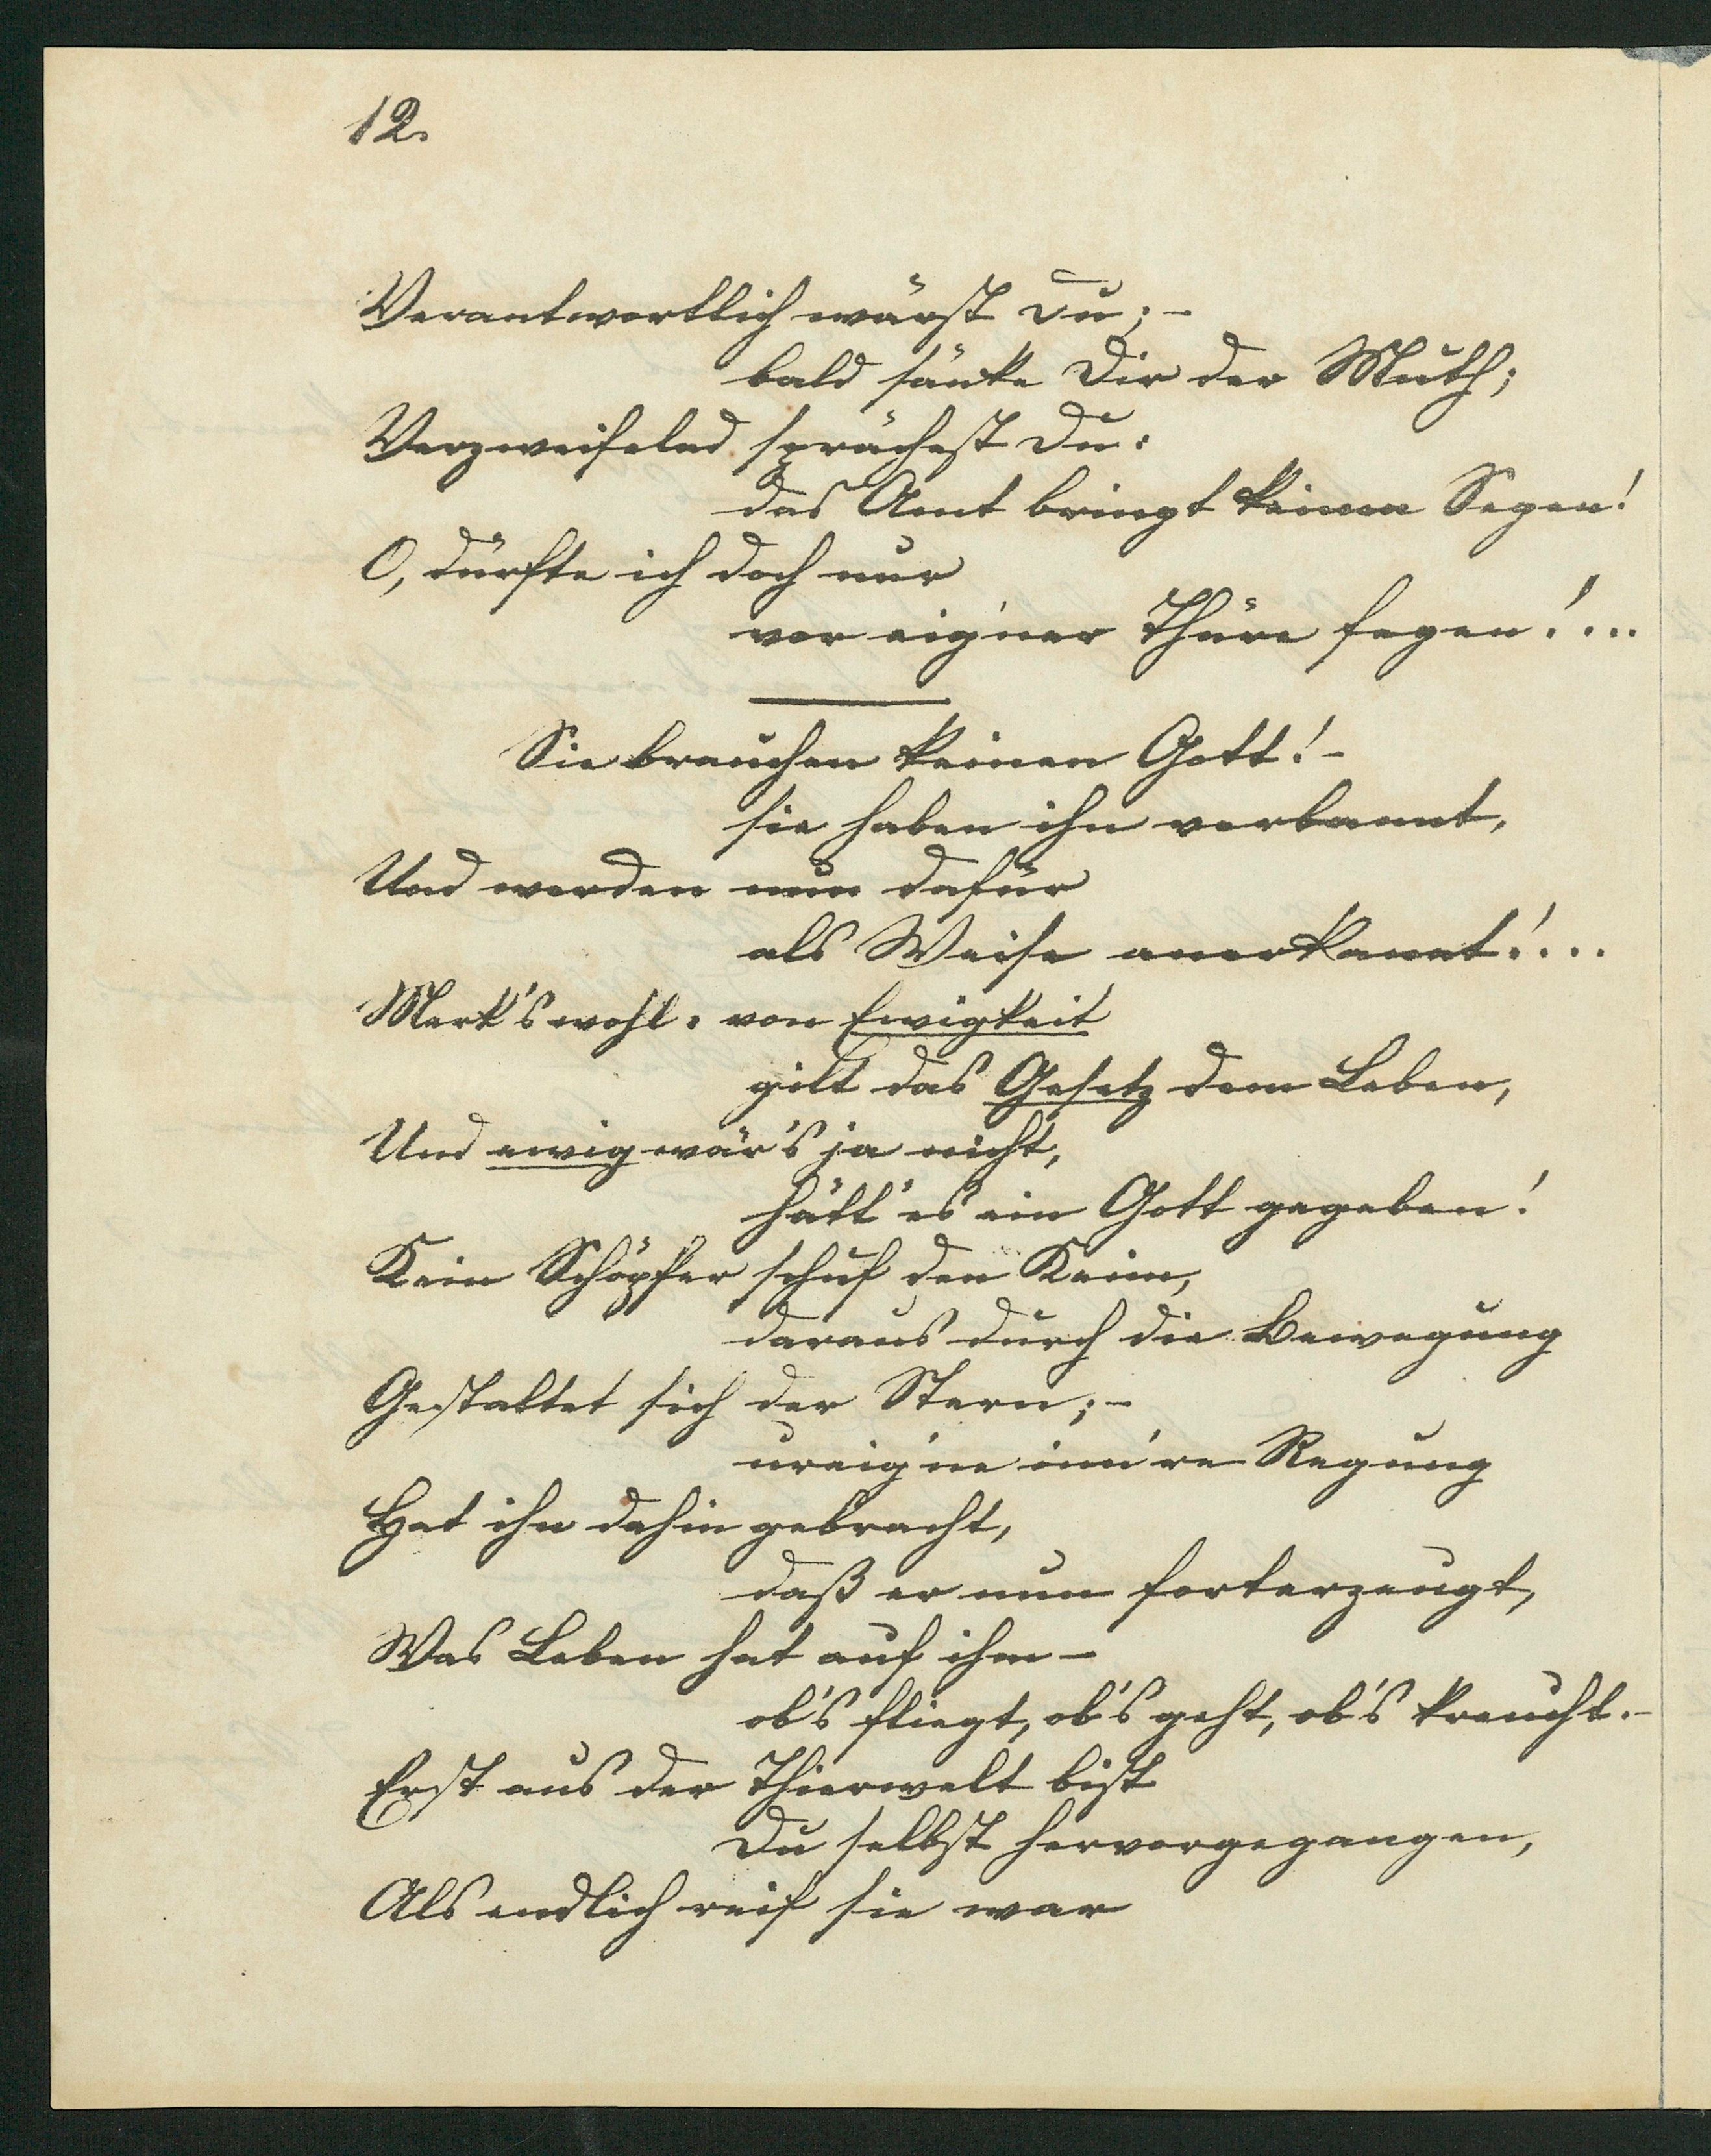 12.
Verantwortlich wärst Du; –
bald sänke Dir der Muth;
Verzweifelnd sprächest Du:
das Amt bringt keinen Segen!
O, dürfte ich doch nur
vor eig'ner Thüre fegen! ...
Sie brauchen keinen Gott! –
sie haben ihn verbannt,
Und werden nun dafür
als Weise anerkannt! ...
Merk's wohl: von Ewigkeit
gilt das Gesetz dem Leben,
Und ewig wär's ja nicht,
hätt' es ein Gott gegeben!
Kein Schöpfer schuf den Keim,
daraus durch die Bewegung
Gestaltet sich der Stern; –
ureig'ne inn're Regung
Hat ihn dahin gebracht,
daß er nun forterzeugt,
Was Leben hat auf ihm –
ob's fliegt, ob's geht, ob's kreucht. –
Erst aus der Thierwelt bist
Du selbst hervorgegangen,
Als endlich reif sie war